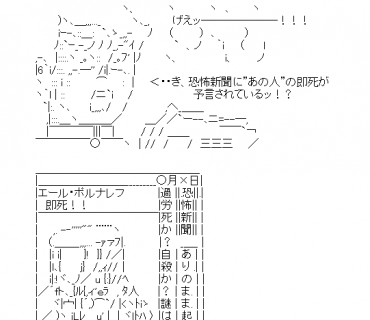 げえッ――――――――！！！
＜・・き、恐怖新聞に”あの人”の即死が
予言されているッ！？
○月×日
恐怖新聞
エール・ポルナレフ
即死！！
過労死か？自殺か？謎は
ありのまま起